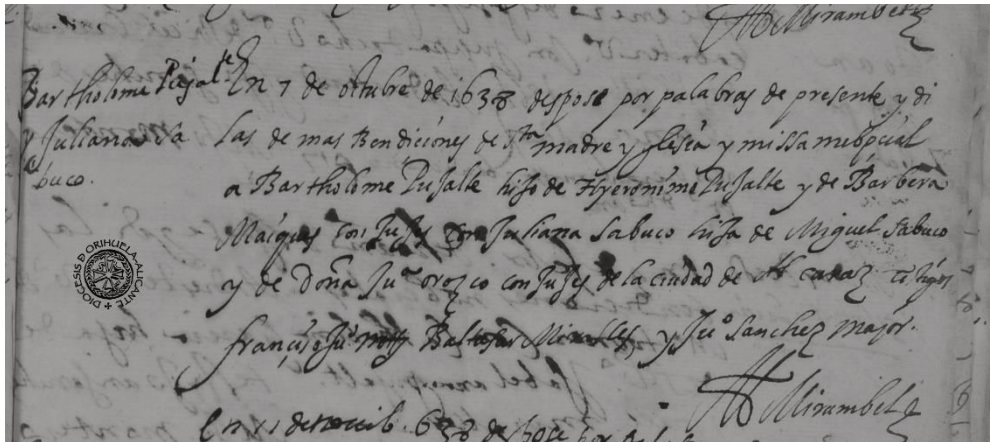 Mirambel
Bartholome Pujalte
y Juliana Sa
buco.
En 7 de octubre de 1638 despose por palabras de presente y di
las demas Bendiciones de Sta madre yglesia y missa nubpcial
a Bartholome Pujalte hijo de Hyeronimo Pujalte y de Barbera
Maiques conjuges con Juliana Sabuco hija de Miguel Sabuco
y de doña Juª orozco conjuges de la ciudad de Alcaraz testigos
francisco Baltasar Miralles y Juº Sanchez major.
Mirambel
DIOCESIS D ORIHUELA-ALICANTE
En 638 despose por